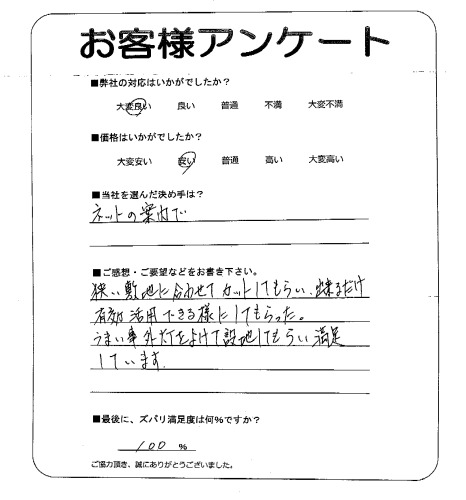 お客様アンケート
■弊社の対応はいかがでしたか?
大変良い 良い 普通 不満 大変不満
■価格はいかがでしたか?
大変安い 安い 普通 高い 大変高い
■当社を選んだ決め手は?
ネットの案内で
■ご感想・ご要望などをお書き下さい。
狭い敷地に合わせてカットしてもらい、出来るだけ
有効活用できる様にしてもらった。
うまい事外灯をよけて設地してもらい満足
しています。
■最後に、ズバリ満足度は何%ですか?
100 %
ご協力頂き、誠にありがとうございました。